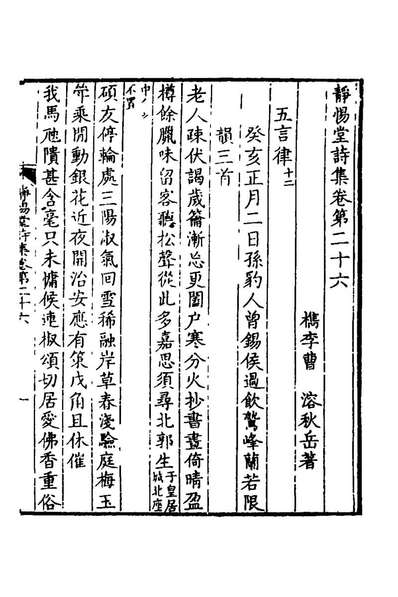 靜惕堂詩集卷第二十六
檇李曹 溶秋岳著
五言律十二
癸亥正月二日孫豹人曾錫侯過飲鷲峰蘭若限
韻三首
老人疎伏謁歲籥漸怱更闔户寒分火抄書晝倚晴盈
樽餘臘味留客聽松聲從此多嘉思須尋北郭生于皇居城北座
中
碩友停輪處三陽淑氣回雪稀融岸草春淺驗庭梅玉
乘閒動銀花近夜開治安應有策戍角且休催
我馬虺隤甚含毫只未慵候連椒頌切居愛佛香重俗
靜惕堂詩集卷第二十六 一